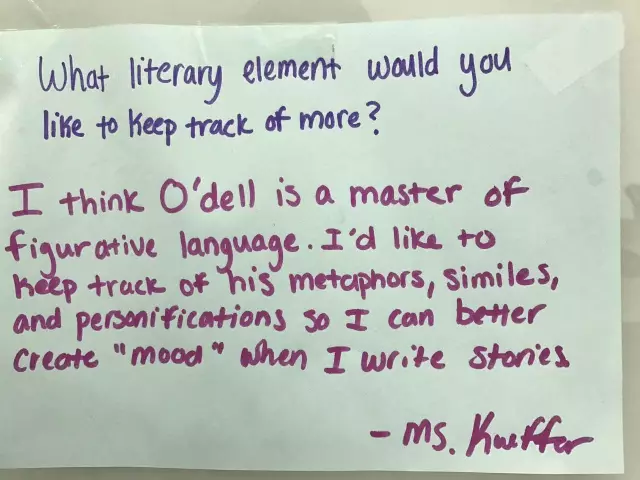 What literary element would you
like to keep track of more?
I think O'dell is a master of
figurative language. I'd like to
keep track of his metaphors, similes,
and personifications so I can better
create "mood" when I write stories.
- Ms.